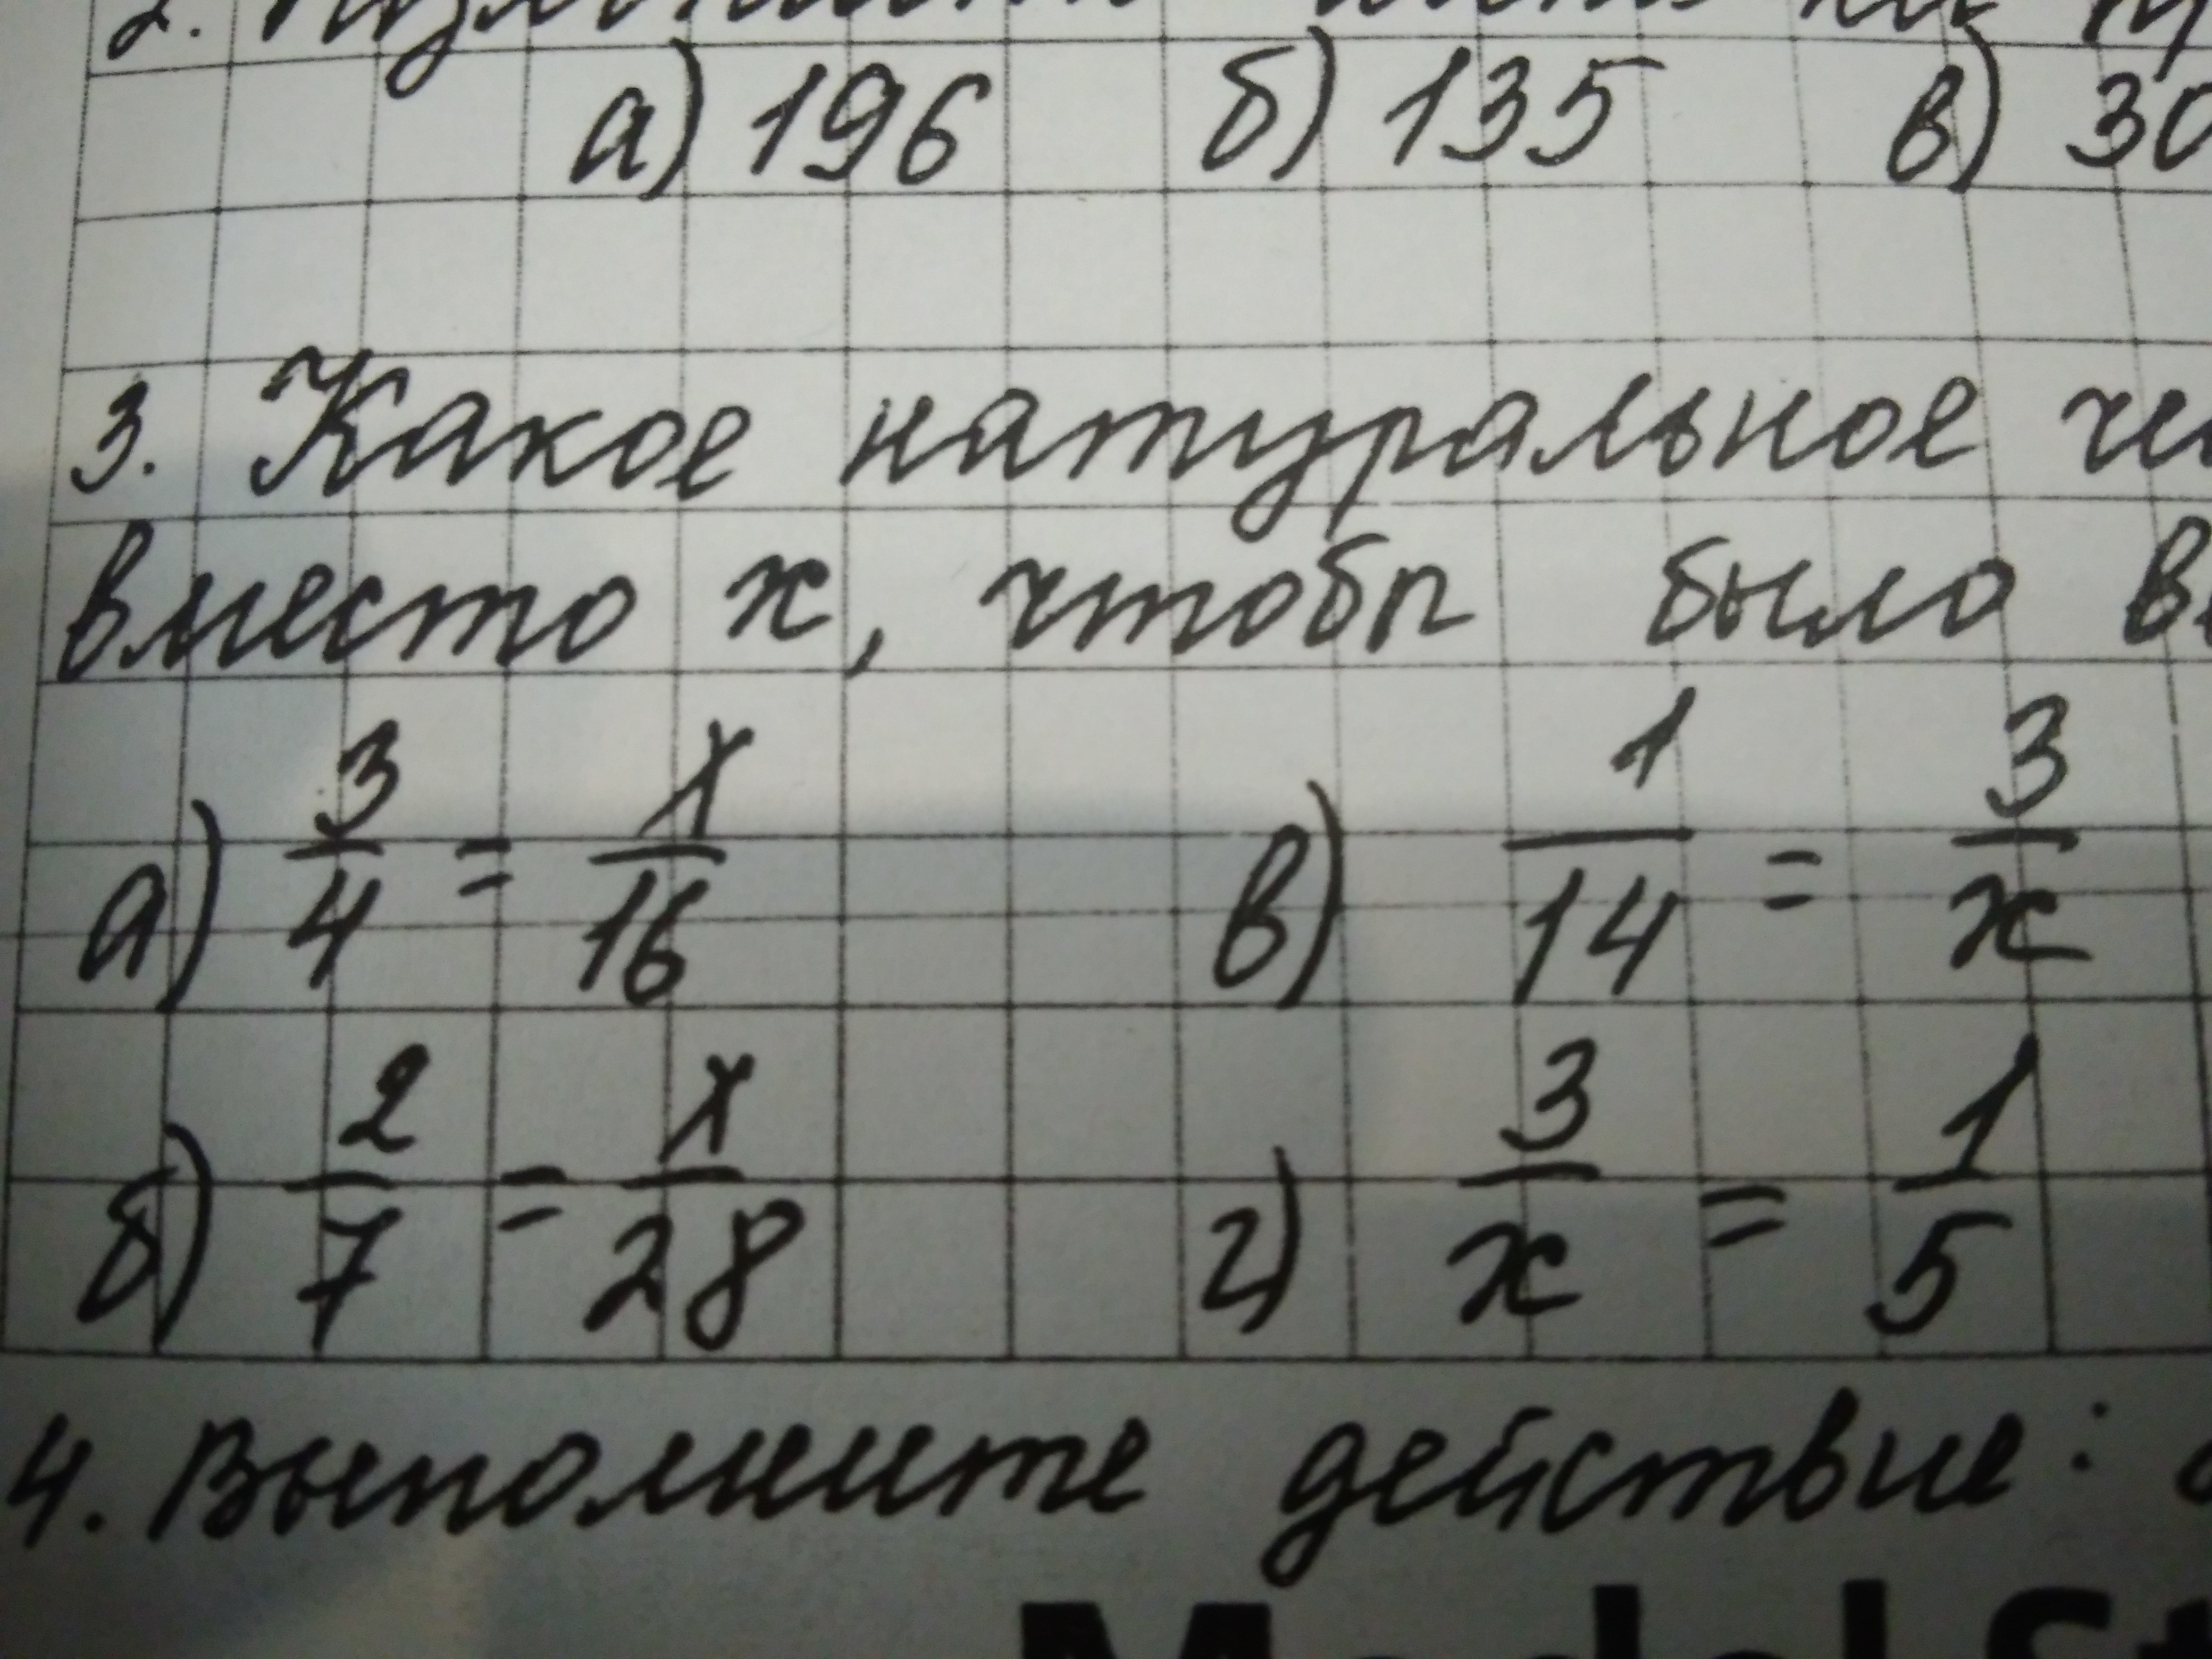 2.
а) 196 б) 135 в) 30
3. Какое натуральное
вместо x, чтобы было
а) 3/4 = x/16 в) 1/14 = 3/x
б) 2/7 = x/28 г) 3/x = 1/5
4. Выполните действие:
Model St